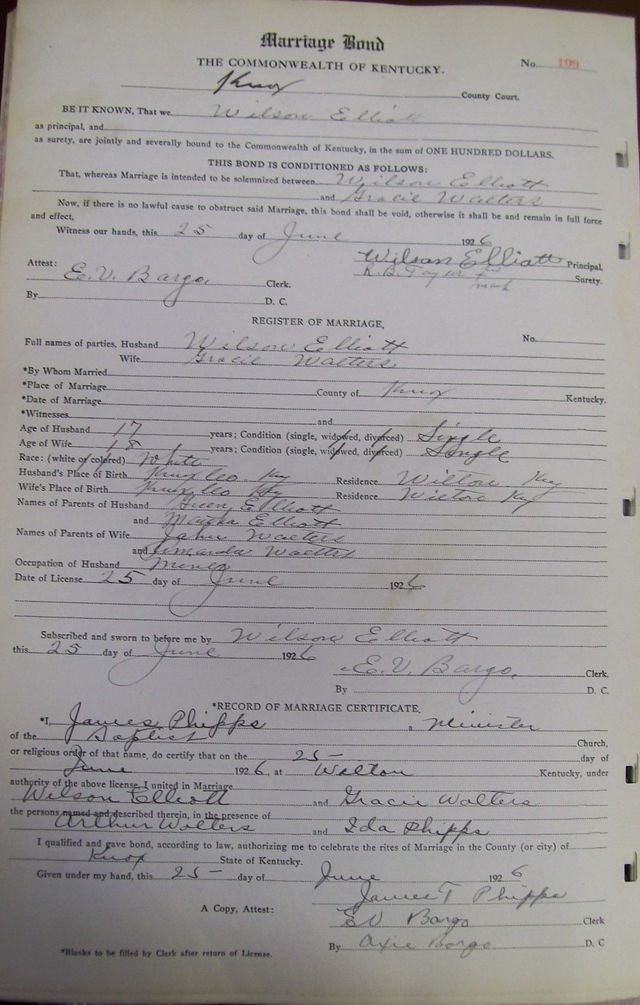 Marriage Bond
THE COMMONWEALTH OF KENTUCKY.
No. 199
Knox County Court.
BE IT KNOWN, That we Wilson Elliott
as principal, and
as surety, are jointly and severally bound to the Commonwealth of Kentucky, in the sum of ONE HUNDRED DOLLARS.
THIS BOND IS CONDITIONED AS FOLLOWS:
That, whereas Marriage is intended to be solemnized between Wilson Elliott
and Gracie Walters
Now, if there is no lawful cause to obstruct said Marriage, this bond shall be void, otherwise it shall be and remain in full force
and effect,
Witness our hands, this 25 day of June 1926
Wilson Elliott Principal,
Attest: R. B. Taylor Surety.
E. V. Bargo, Clerk. mark
By D. C.
REGISTER OF MARRIAGE,
Full names of parties, Husband Wilson Elliott No.
Wife Gracie Walters
*By Whom Married
*Place of Marriage County of Knox Kentucky.
*Date of Marriage
*Witnesses and
Age of Husband 17 years; Condition (single, widowed, divorced) Single
Age of Wife 18 years; Condition (single, widowed, divorced) Single
Race: (white or colored) White
Husband's Place of Birth Knox Co. Ky Residence Wilton Ky
Wife's Place of Birth Knox Co Ky Residence Wilton Ky
Names of Parents of Husband Elliott
and Elliott
Names of Parents of Wife John Walters
and Amanda Walters
Occupation of Husband Miner
Date of License 25 day of June 1926
Subscribed and sworn to before me by Wilson Elliott
this 25 day of June 1926
E. V. Bargo, Clerk.
By D. C.
*RECORD OF MARRIAGE CERTIFICATE,
*I, James Phipps, Minister
of the Baptist Church,
or religious order of that name, do certify that on the 25- day of
June 1926, at Wilton Kentucky, under
authority of the above license, I united in Marriage
Wilson Elliott and Gracie Walters
the persons named and described therein, in the presence of
Arthur Walters and Ida Phipps
I qualified and gave bond, according to law, authorizing me to celebrate the rites of Marriage in the County (or city) of
Knox State of Kentucky.
Given under my hand, this 25- day of June 1926
James T Phipps
A Copy, Attest: EV Bargo Clerk
By Oxie Bargo D. C
*Blanks to be filled by Clerk after return of License.